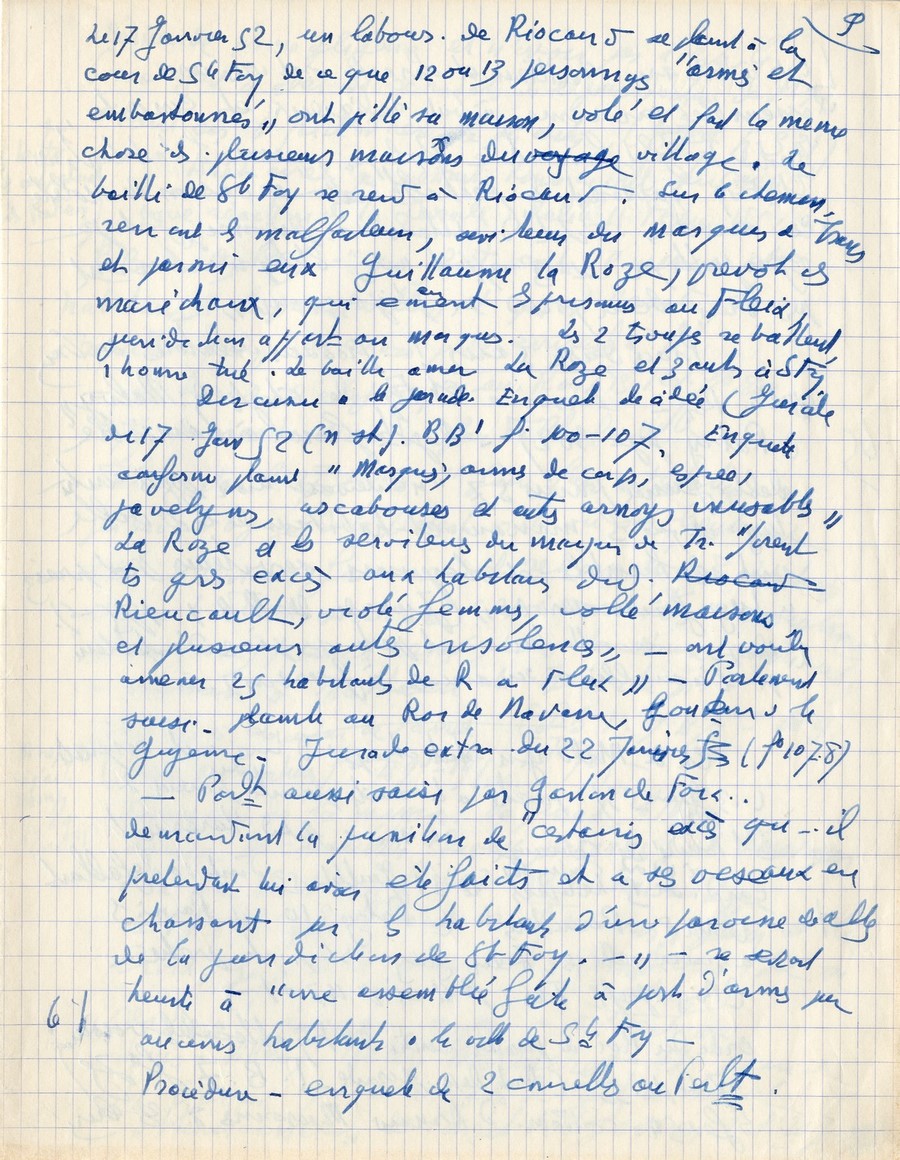 9
Le 17 Janvier 52, un labour. de Riocaud se plaint à la
cour de Ste Foy de ce que 12 ou 13 personnages "armés et
embastonnés" ont pillé sa maison, volé et fait la meme
chose ds. plusieurs maisons du voyage village. Le
bailli de Ste Foy se rend à Riocaud. Sur le chemin,
les malfaiteurs, serviteurs du marquis de Trans
et parmi eux Guillaume la Roze, prevot des
maréchaux, qui emmenent les prisonn au Fleix,
juridiction appart au marquis. Les 2 troupes se battent,
1 homme tué. Le bailli amene La Roze et 3 auts à Ste Fy
la jurade. Enquete décidée (Jurade
du 17 Janv 52 (n st). BB1 f° 100-107. Enquete
"Masqués, armés de corps, espees,
javelyns, arcabouses et auts arnoys inusables"
La Roze et les serviteurs du marquis de Tr. "firent
ts gros excès aux habitans dud. Riocaud
Rieucault, violé femmes, vollé maisons
et plusieurs auts insolences" — ont voulu
amener 25 habitants de R a Fleix" — Parlement
saisi. plainte au Roi de Navarre, Gouverneur de
Guyenne. Jurade extra du 22 Janvier 52 (f° 107-8)
— Parlt aussi saisi par Gaston de Foix..
demandant la punition de "certains excès que -- il
pretendait lui avoir été faicts et a ses oeseaux en
chassant par les habitants d'une paroisse
de la juridiction de Ste Foy. — " — se serait
heurté à "une assemblée faite à port d'armes par
aucuns habitants de la ville de Ste Fy —
61
Procédure — enquete de 2 conseillers au Parlt.